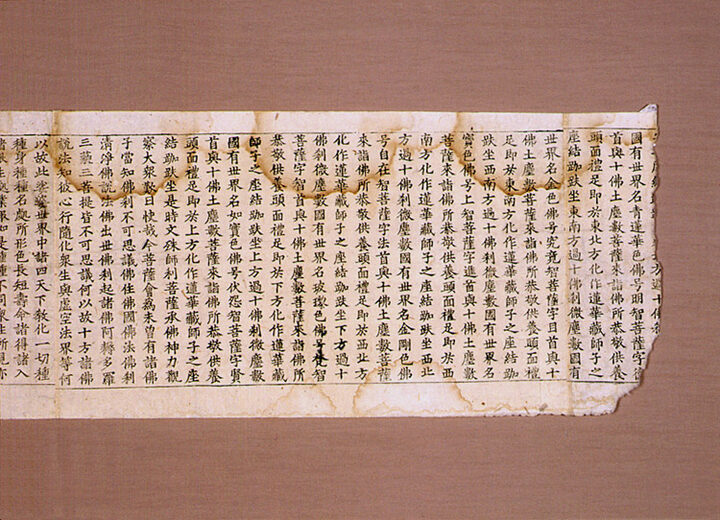 方過十佛刹
國有世界名青蓮華色佛号明智菩薩字德
首與十佛土塵數菩薩來詣佛所恭敬供養
頭面禮足即於東北方化作蓮華藏師子之
座結跏趺坐東南方過十佛刹微塵數國有
世界名金色佛号究竟智菩薩字目首與十
佛土塵數菩薩來詣佛所恭敬供養頭面禮
足即於東南方化作蓮華藏師子之座結跏
趺坐西南方過十佛刹微塵數國有世界名
寶色佛号上智菩薩字進首與十佛土塵數
菩薩來詣佛所恭敬供養頭面禮足即於西
南方化作蓮華藏師子之座結跏趺坐西北
方過十佛刹微塵數國有世界名金剛色佛
号自在智菩薩字法首與十佛土塵數菩薩
來詣佛所恭敬供養頭面禮足即於西北方
化作蓮華藏師子之座結跏趺坐下方過十
佛刹微塵數國有世界名玻瓈色佛号梵智
菩薩字智首與十佛土塵數菩薩來詣佛所
恭敬供養頭面禮足即於下方化作蓮華藏
師子之座結跏趺坐上方過十佛刹微塵數
國有世界名如實色佛号伏怨智菩薩字賢
首與十佛土塵數菩薩來詣佛所恭敬供養
頭面禮足即於上方化作蓮華藏師子之座
結跏趺坐是時文殊師利菩薩承佛神力觀
察大衆歎曰快哉今菩薩會爲未曾有諸佛
子當知佛刹不可思議佛住佛國佛法佛刹
清淨佛說法佛出世佛刹起諸佛阿耨多羅
三藐三菩提皆不可思議何以故十方諸佛
說法知彼心行隨化衆生與虛空法界等何
以故此娑婆世界中諸四天下敎化一切種
種身種種名處所形色長短壽命諸得諸入
諸根生處業報如是種種不同衆生所見亦